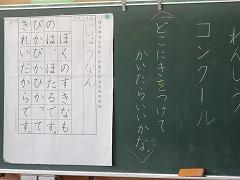 れんしゅう
コンクール
〈どこにきをつけて
かいたらいいかな。〉
しょうなん
ぼくのすきなも
のは、ほたるです。
ぴかぴかひかって
きれいだからです。